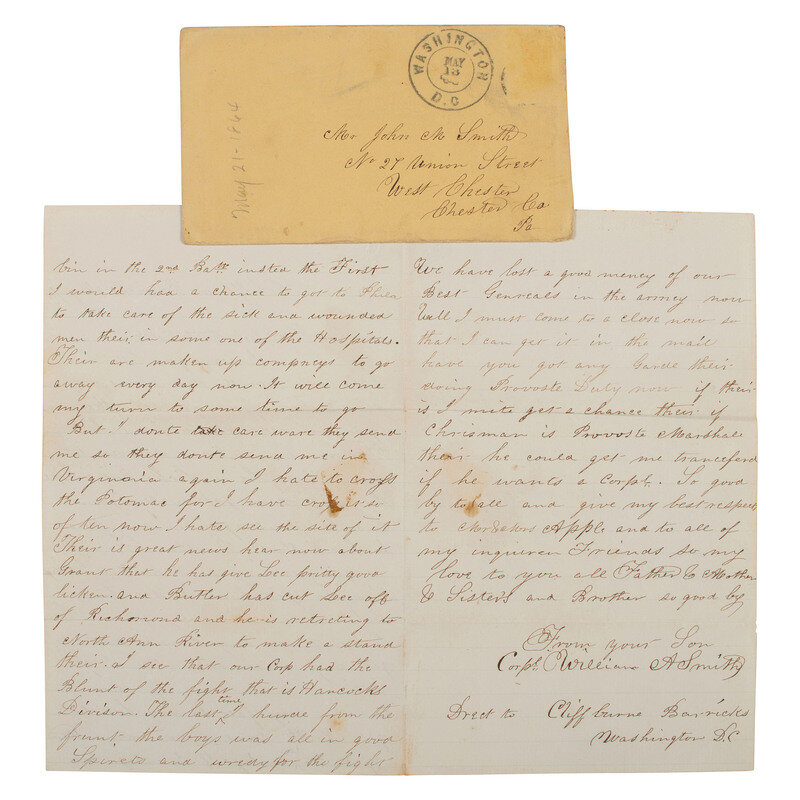 WASHINGTON
MAY
13
D.C
May 21-1864
Mr John M Smith
No 27 Union Street
West Chester
Chester Co
Pa
bin in the 2nd Batt insted the First
I would had a chance to got to Phila
to take care of the sick and wounded
men their in some one of the Hospitals.
Their are maken up compneys to go
away every day now. It will come
my turn to some time to go
But I donte take care ware they send
me so they donte send me in
Virginnia again I hate to cross
the Potomac for I have cross it so
often now I hate see the site of it
Their is great news hear now about
Grant that he has give Lee pritty good
licken. and Butler has cut Lee off
of Richomond and he is retreting to
North Ann River to make a stand
their. I see that our Corp had the
Blunt of the fight that is Hancocks
Divison. The last time I hurde from the
frunt the boys was all in good
Spirets and wredy for the fight
We have lost a good meney of our
Best Genreals in the army now
Well I must come to a close now so
that I can get it in the mail
have you got any Garde their
doing Provoste Duty now if their
is I mite get a chance their if
Chrisman is Provoste Marshale
their he could get me tranceferd
if he wants a Corpl. So good
by to all and give my best respect
to Apple and to all of
my inquiren Friends so my
love to you all Father & Mother
& Sisters and Brother so good by
From your Son
Corpl. William A Smith
Drect to Cliffburne Barricks
Washington D.C